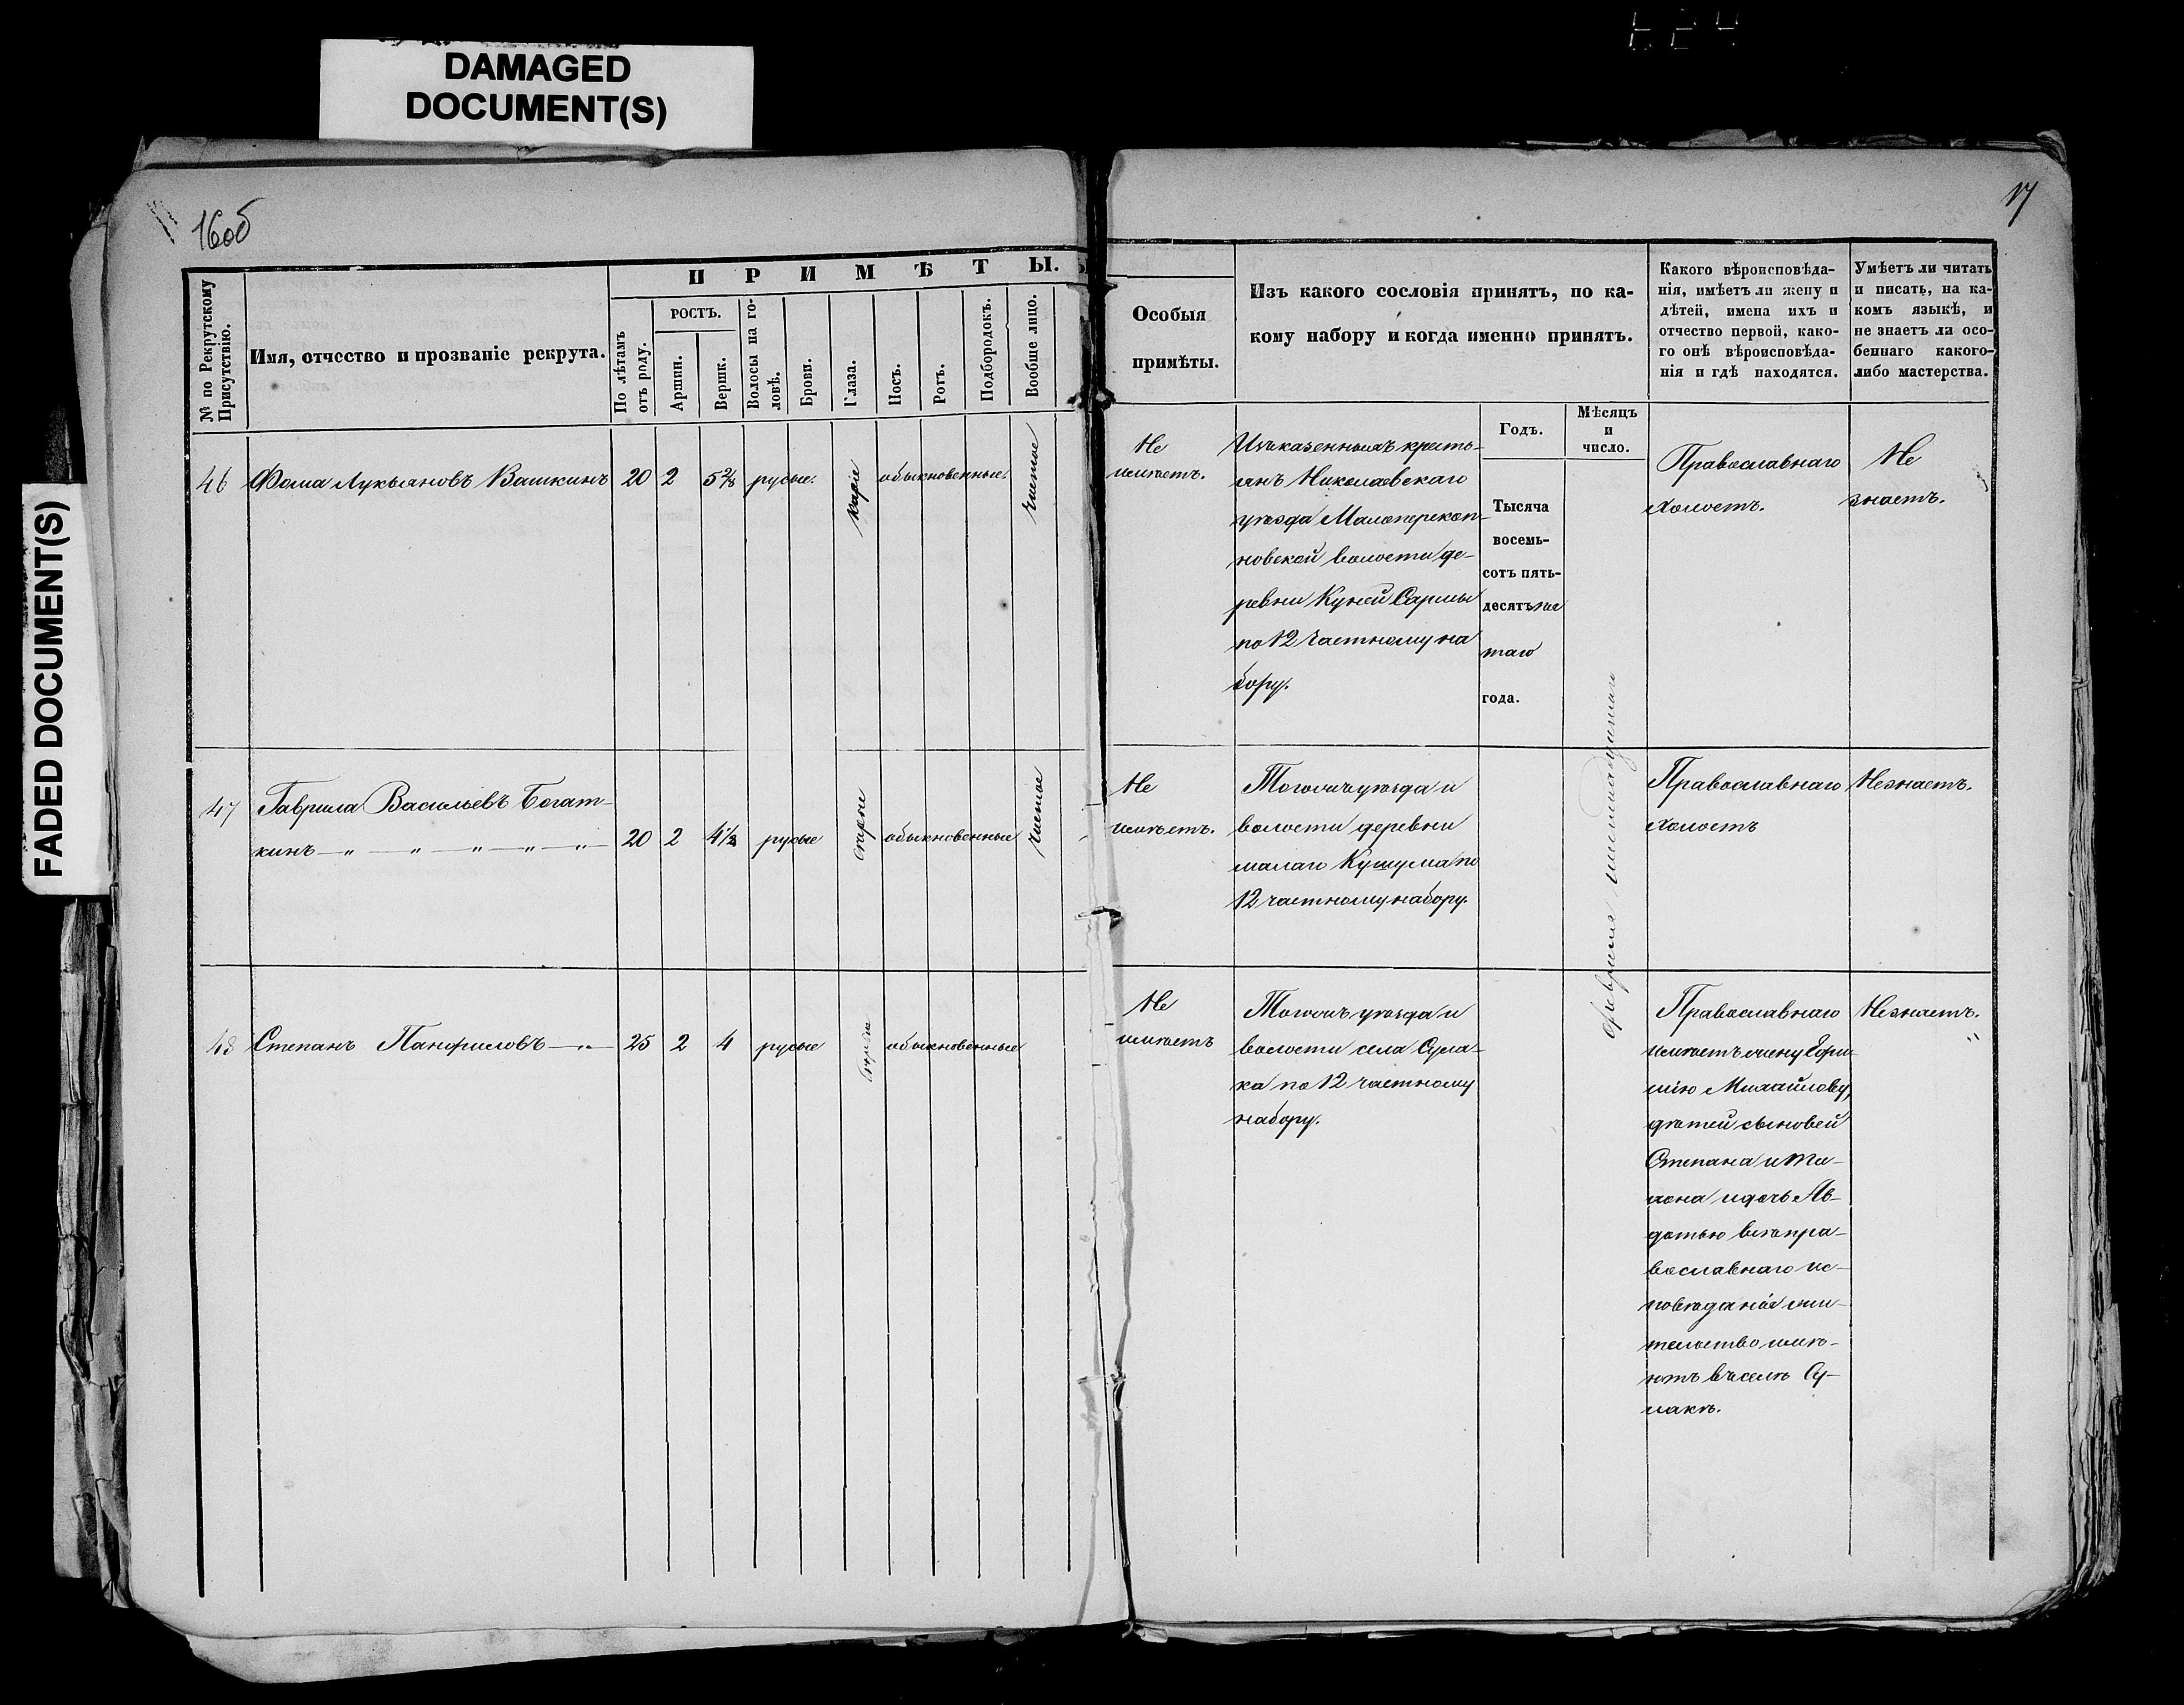 DAMAGED
DOCUMENT(S)
FADED DOCUMENT(S)
16об
17
№ по Рекрутскому
Присутствію.
Имя, отчество и прозваніе рекрута.
ПРИМѢТЫ.
По лѣтамъ
отъ роду.
РОСТЪ.
Аршин.
Вершк.
Волосы на го-
ловѣ.
Брови.
Глаза.
Носъ.
Ротъ.
Подбородокъ.
Вообще лицо.
Особыя
примѣты.
Изъ какого сословія принятъ, по ка-
кому набору и когда именно принятъ.
Какого вѣроисповѣда-
нія, имѣетъ ли жену и
дѣтей, имена ихъ и
отчество первой, како-
го онѣ вѣроисповѣда-
нія и гдѣ находятся.
Умѣетъ ли читать
и писать, на ка-
комъ языкѣ, и
не знаетъ ли осо-
беннаго какого-
либо мастерства.
Годъ.
Мѣсяцъ
и
число.
46 Фома Лукьяновъ Вашкинъ 20 2 5 2/8 русые. каріе обыкновенные. чистое
Не
имѣетъ.
Изъ казенныхъ кресть-
янъ Николаевскаго
уѣзда Малоперекоп-
новской волости де-
ревни Кучей Сармы
по 12 частному на
бору.
Тысяча
восемь-
сотъ пять-
десятъ пя
таго
года.
февраля шестнадцатаго
Православнаго
холостъ.
Не
знаетъ.
47 Гаврила Васильевъ Богат-
кинъ — „ — „ — „ — „ — „ — 20 2 4 1/2 русые карие обыкновенные чистое
Не
имѣетъ.
Тогожъ уѣзда и
волости деревни
малаго Кушума по
12 частному набору.
Православнаго
холостъ
Незнаетъ.
48 Степанъ Панфиловъ — „ — 25 2 4 русые обыкновенные
Не
имѣетъ
Тогожъ уѣзда и
волости села Сула-
ка по 12 частному
набору.
Православнаго
имѣетъ жену
Михайлову,
дѣтей сыновей
Степана и Ти-
хона и дочь Ав-
дотью всѣ пра-
вославнаго ис-
повѣданія жи-
тельство имѣ-
ютъ въ селѣ Су-
лакѣ.
Незнаетъ.